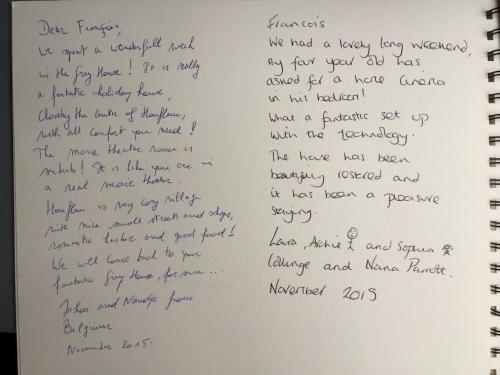 Dear François,
We spent a wonderfull week
in the Gray House! It is really
a fantastic holiday house,
Closeby the center of Honfleur,
with all comfort you need!
The movie theater room is
It is like you are in
a real movie theater.
Honfleur is very cosy village
with nice small streets and shops,
romantic harbor and good food!
We will come back to your
fantastic Gray House, for sure...
Johan and from
Belgium
November 2015.
Francois
We had a lovely long weekend,
my four year old has
asked for a home cinema
in his bedroom!
What a fantastic set up
with the technology.
The house has been
beautifully restored and
it has been a pleasure
staying.
Laura, Archie and Sophia
Collinge and Nana Parrott.
November 2015